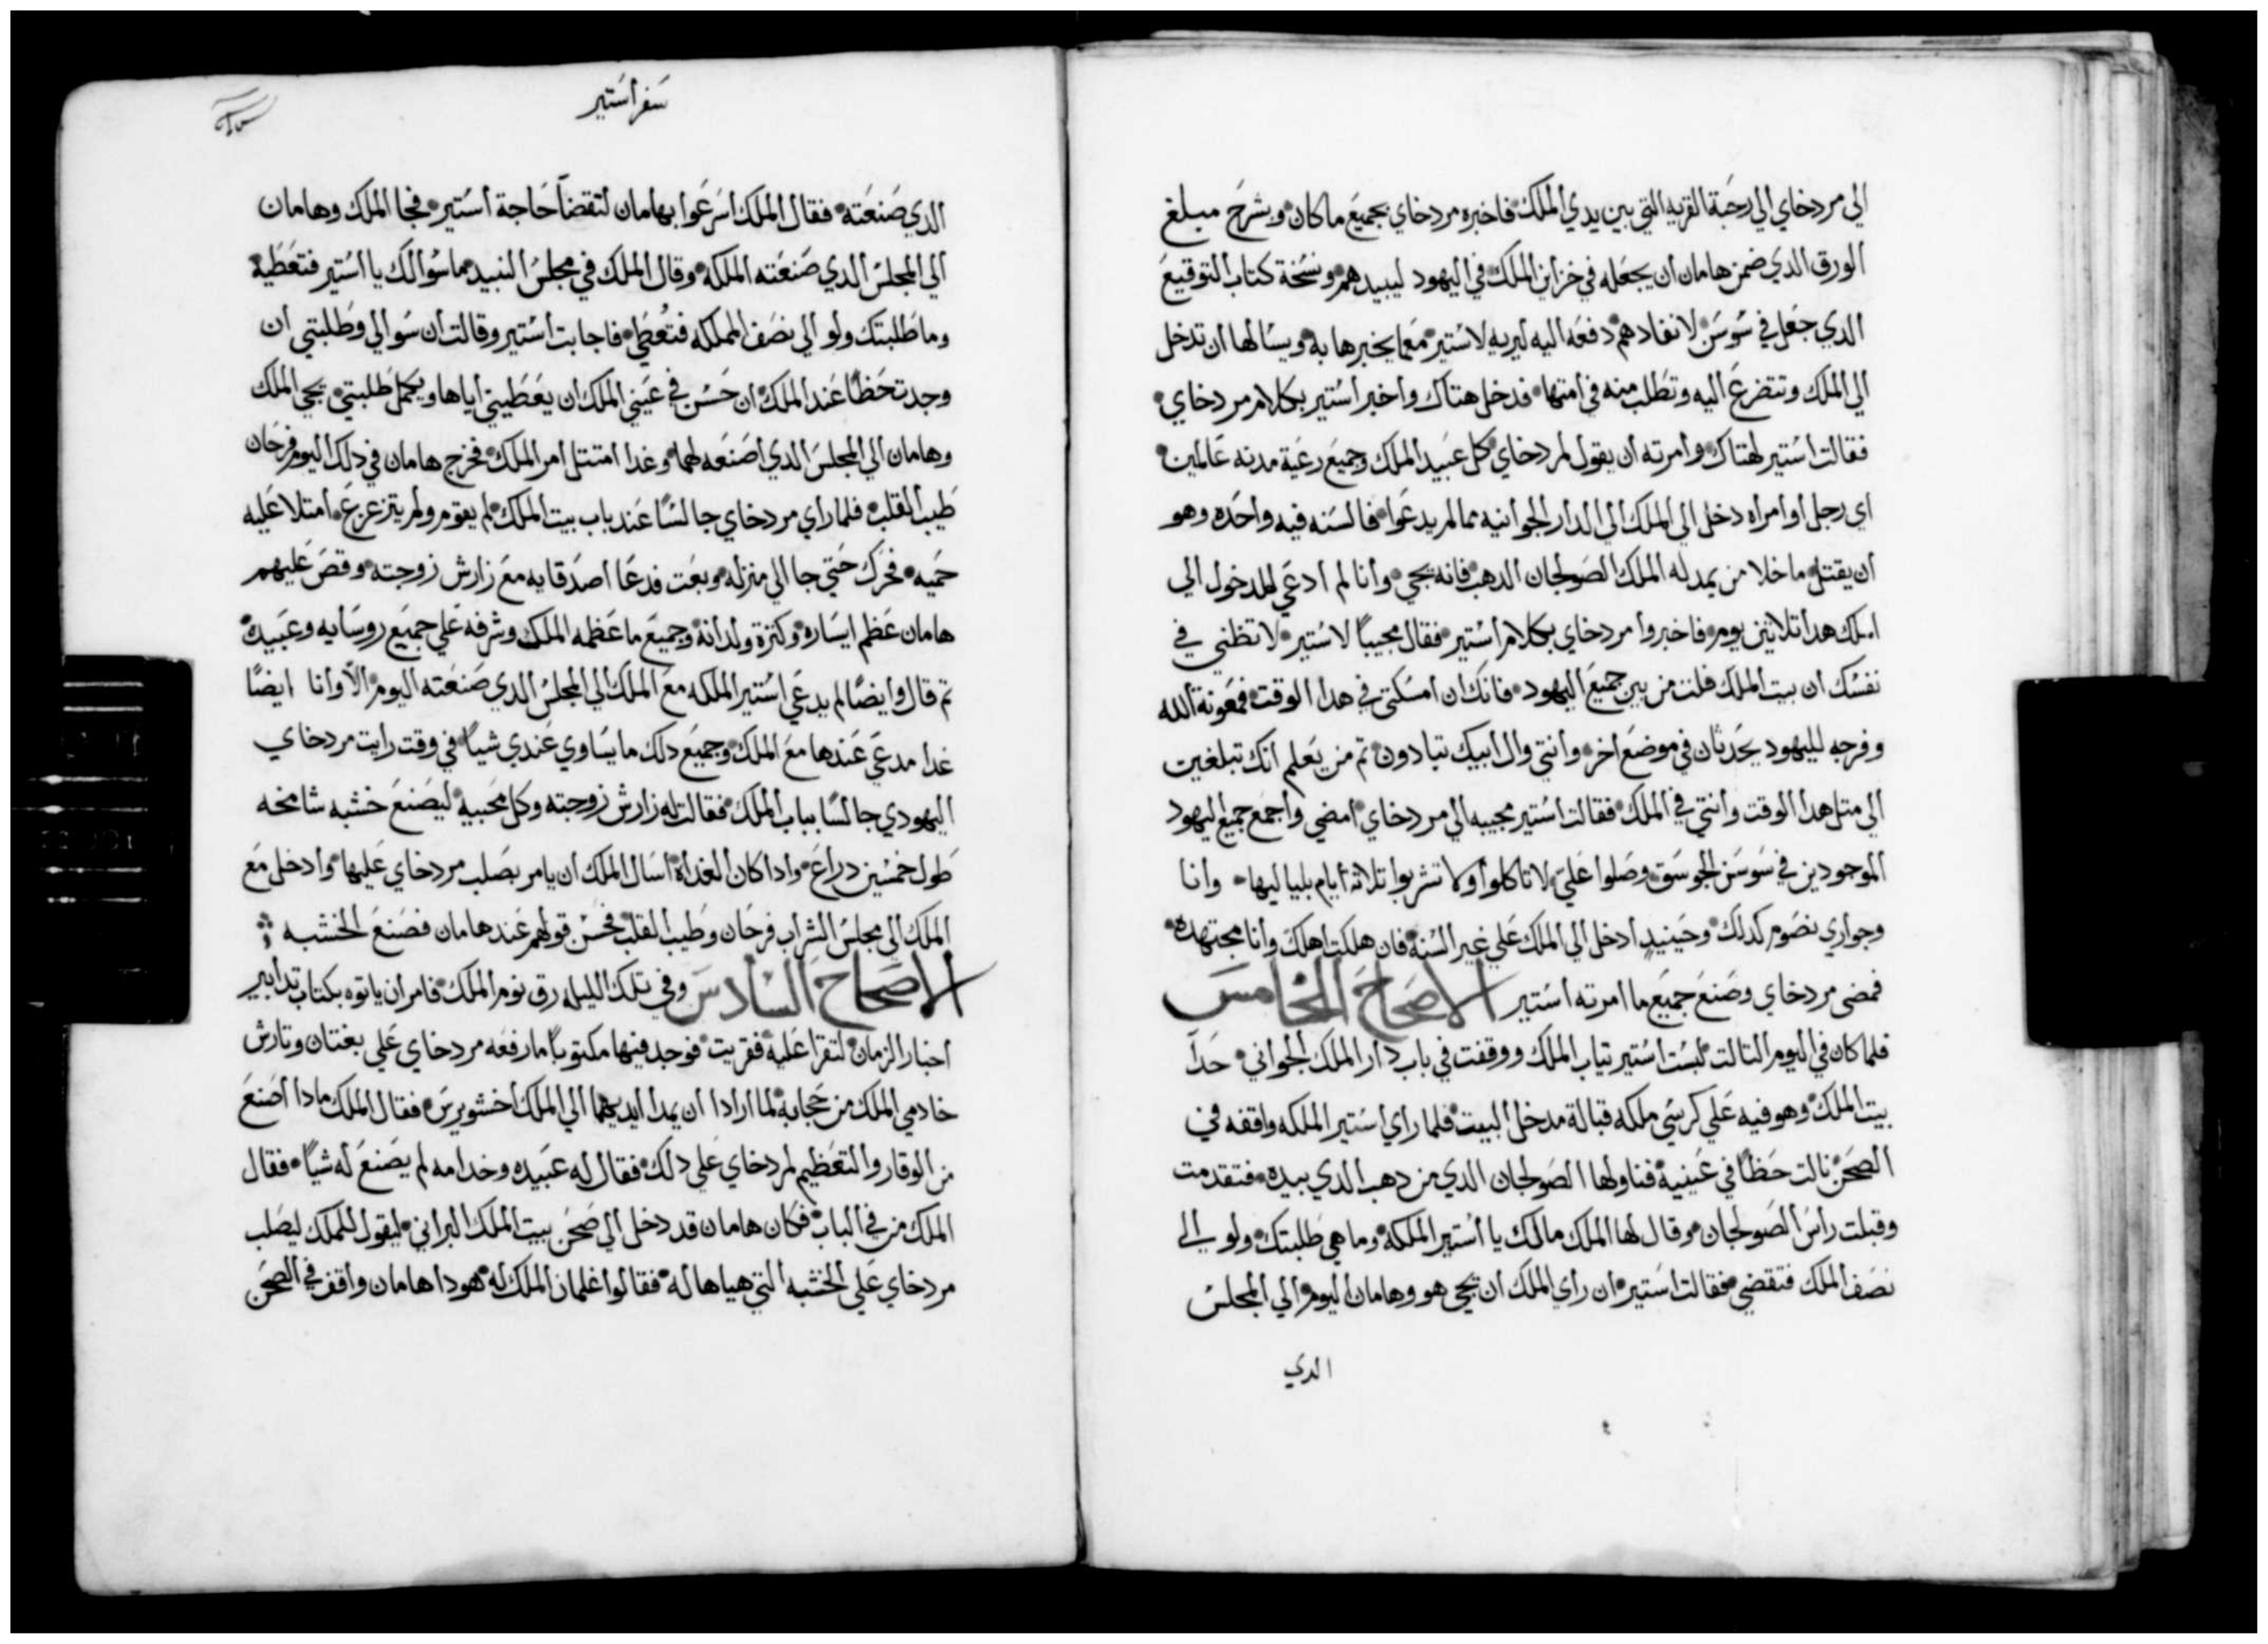 الي مردخاي الي رحبة القريه التي بين يدي الملك فاخبره مردخاي بجميع ما كان وبشرح مبلغ
الورق الدي ضمن هامان ان يجعله في خزاين الملك في اليهود ليبيدهم ونسخة كتاب التوقيع
الدي جعل في سوسن لانفادهم دفعه اليه ليريه لاستير معما يخبرها به ويسالها ان تدخل
الي الملك وتتضرع اليه وتطلب منه في امتها فدخل هتاك واخبر استير بكلام مردخاي
فقالت استير لهتاك وامرته ان يقول لمردخاي كل عبيد الملك وجميع رعية مدنه عالمين
اي رجل او امراه دخل الي الملك الي الدار الجوانيه مما لم يدعوا فالسنه فيه واحده وهو
ان يقتل ما خلا من يمد له الملك الصولجان الدهب فانه يحيي وانا لم ادعي للدخول الي
الملك هدا تلاتين يوم فاخبروا مردخاي بكلام استير فقال مجيبا لاستير لا تظني في
نفسك ان بيت الملك فلت من بين جميع اليهود فانك ان امسكتي في هدا الوقت فمعونة الله
وفرجه لليهود يحدثان في موضع اخر وانتي وال ابيك تبادون تم من يعلم انك تبلغين
الي متل هدا الوقت وانتي في الملك فقالت استير مجيبه الي مردخاي امضي واجمع جميع اليهود
الموجودين في سوسن الجوسق وصلوا علي لا تاكلوا ولا تشربوا تلاته ايام بلياليها وانا
وجواري نصوم كدلك وحينيد ادخل الي الملك علي غير السنه فان هلكت اهلك وانا مجتهده
فمضي مردخاي وصنع جميع ما امرته استير الاصحاح الخامس
فلما كان في اليوم التالت لبست استير تياب الملك ووقفت في باب دار الملك الجواني حدا
بيت الملك وهو فيه علي كرسي ملكه قبالة مدخل البيت فلما راي استير الملكه واقفه في
الصحن نالت حظا في عينيه فناولها الصولجان الدي من دهب الدي بيده فتقدمت
وقبلت راس الصولجان وقال لها الملك مالك يا استير الملكه وما هي طلبتك ولو الي
نصف الملك فتقضي فقالت استير ان راي الملك ان يجي هو وهامان اليوم الي المجلس
الدي
سفر استير
الدي صنعته فقال الملك اسرعوا بهامان لتقضا حاجة استير فجا الملك وهامان
الي المجلس الدي صنعته الملكه وقال الملك في مجلس النبيد ما سوالك يا استير فتعطيه
وما طلبتك ولو الي نصف المملكه فتعطي فاجابت استير وقالت ان سوالي وطلبتي ان
وجدت حظا عند الملك ان حسن في عيني الملك ان يعطيني اياها ويكمل طلبتي يجي الملك
وهامان الي المجلس الدي اصنعه لهما وغدا امتتل امر الملك فخرج هامان في دلك اليوم فرحان
طيب القلب فلما راي مردخاي جالسا عند باب بيت الملك لم يقوم ولم يتزعزع امتلا عليه
حميه فحرك حتي جا الي منزله وبعت فدعا اصدقايه مع زارش زوجته وقص عليهم
هامان عظم ايساره وكترة ولدانه وجميع ما عظمه الملك وشرفه علي جميع روسايه وعبيده
تم قال وايضا لم يدعي استير الملكه مع الملك الي المجلس الدي صنعته اليوم الا وانا ايضا
غدا مدعي عندها مع الملك وجميع دلك ما يساوي عندي شيا في وقت رايت مردخاي
اليهودي جالسا بباب الملك فقالت له زارش زوجته وكل محبيه ليصنع خشبه شامخه
طول خمسين دراع وادا كان الغداة اسال الملك ان يامر بصلب مردخاي عليها وادخل مع
الملك الي مجلس الشراب فرحان وطيب القلب فحسن قولهم عند هامان فصنع الخشبه
الاصحاح السادس وفي تلك الليله رق نوم الملك فامر ان ياتوه بكتاب تدابير
اخبار الزمان لتقرا عليه فقريت فوجد فيها مكتوبا ما رفعه مردخاي علي بغتان وتارش
خادمي الملك من حجابه لما ارادا ان يمدا ايديهما الي الملك اخشويرس فقال الملك مادا اصنع
من الوقار والتعظيم لمردخاي علي دلك فقال له عبيده وخدامه لم يصنع له شيا فقال
الملك من في الباب فكان هامان قد دخل الي صحن بيت الملك البراني ليقول للملك ليصلب
مردخاي علي الخشبه التي هياها له فقالوا غلمان الملك له هودا هامان واقف في الصحن